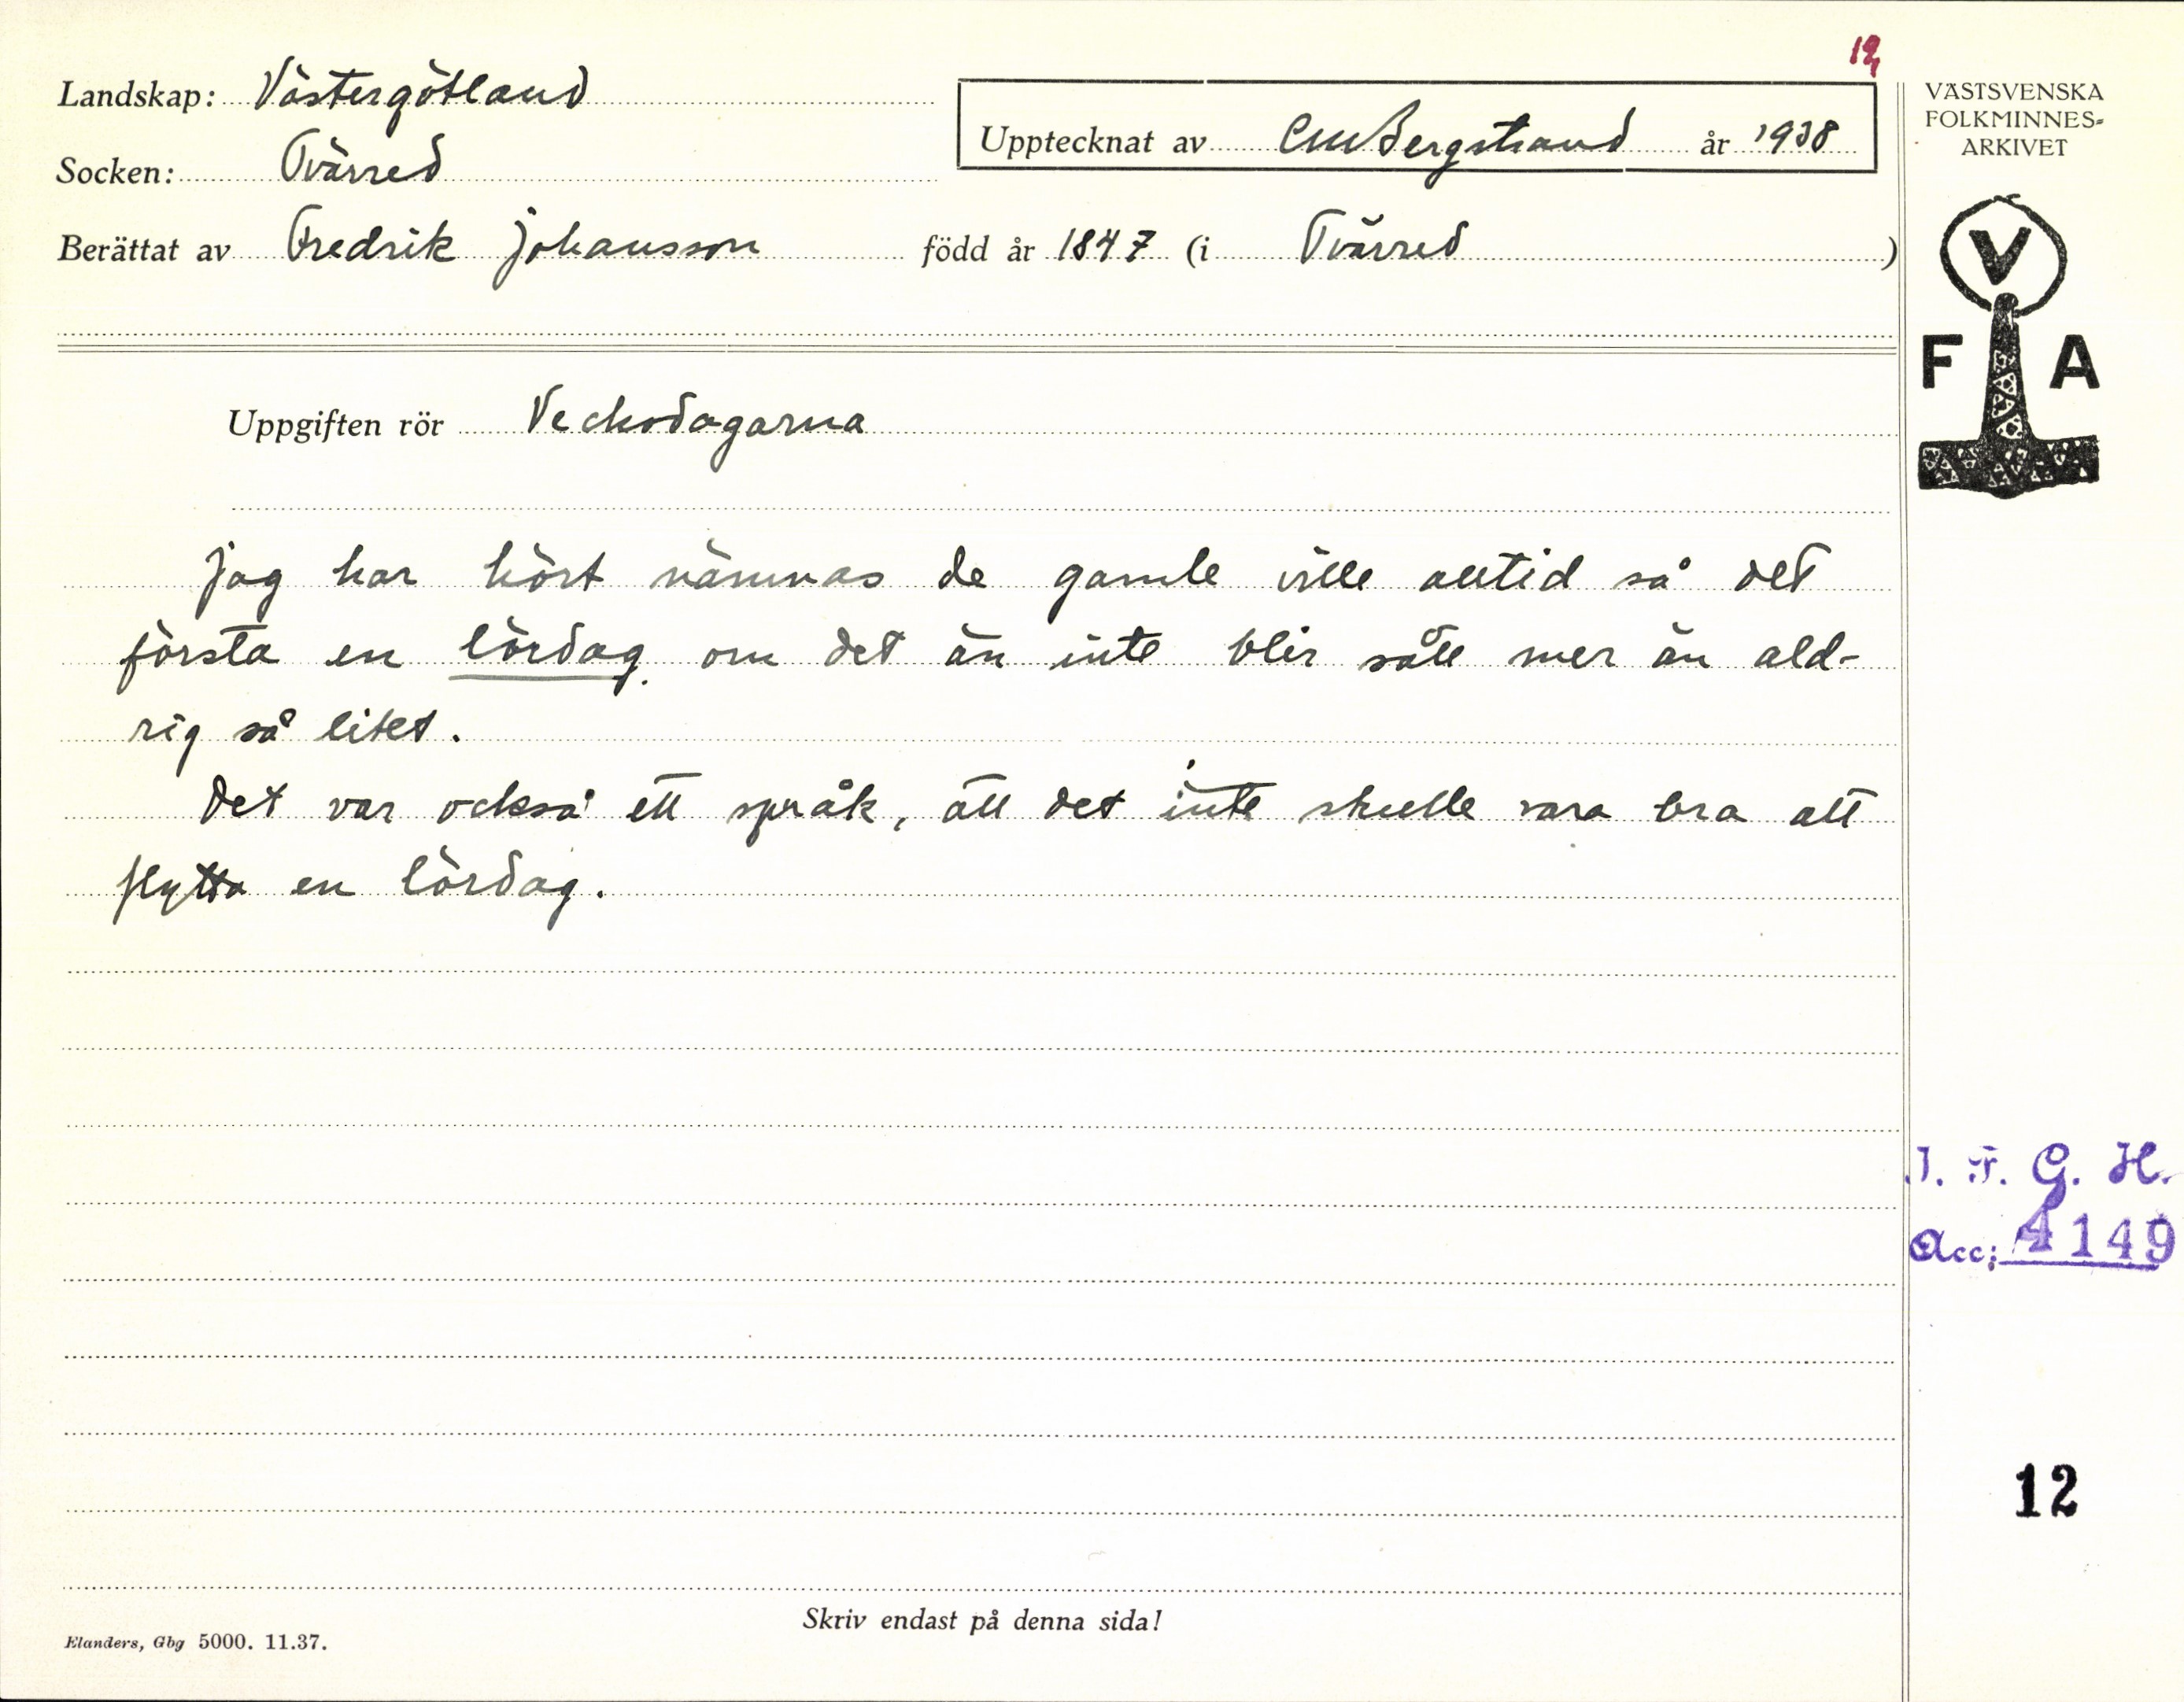 12
Landskap: Västergötland
Upptecknat av CMBergstrand år 1938
Socken: Tvärred
Berättat av Fredrik Johansson född år 1847 (i Tvärred)
VÄSTSVENSKA
FOLKMINNES-
ARKIVET
V
F A
Uppgiften rör Veckodagarna
Jag har hört nämnas de gamle ville alltid så det
första en lördag om det än inte blir sått mer än ald-
rig så litet.
Det var också ett språk, att det inte skulle vara bra att
flytta en lördag.
I. F. G. H.
Acc: 4149
12
Skriv endast på denna sida!
Elanders, Gbg 5000. 11.37.